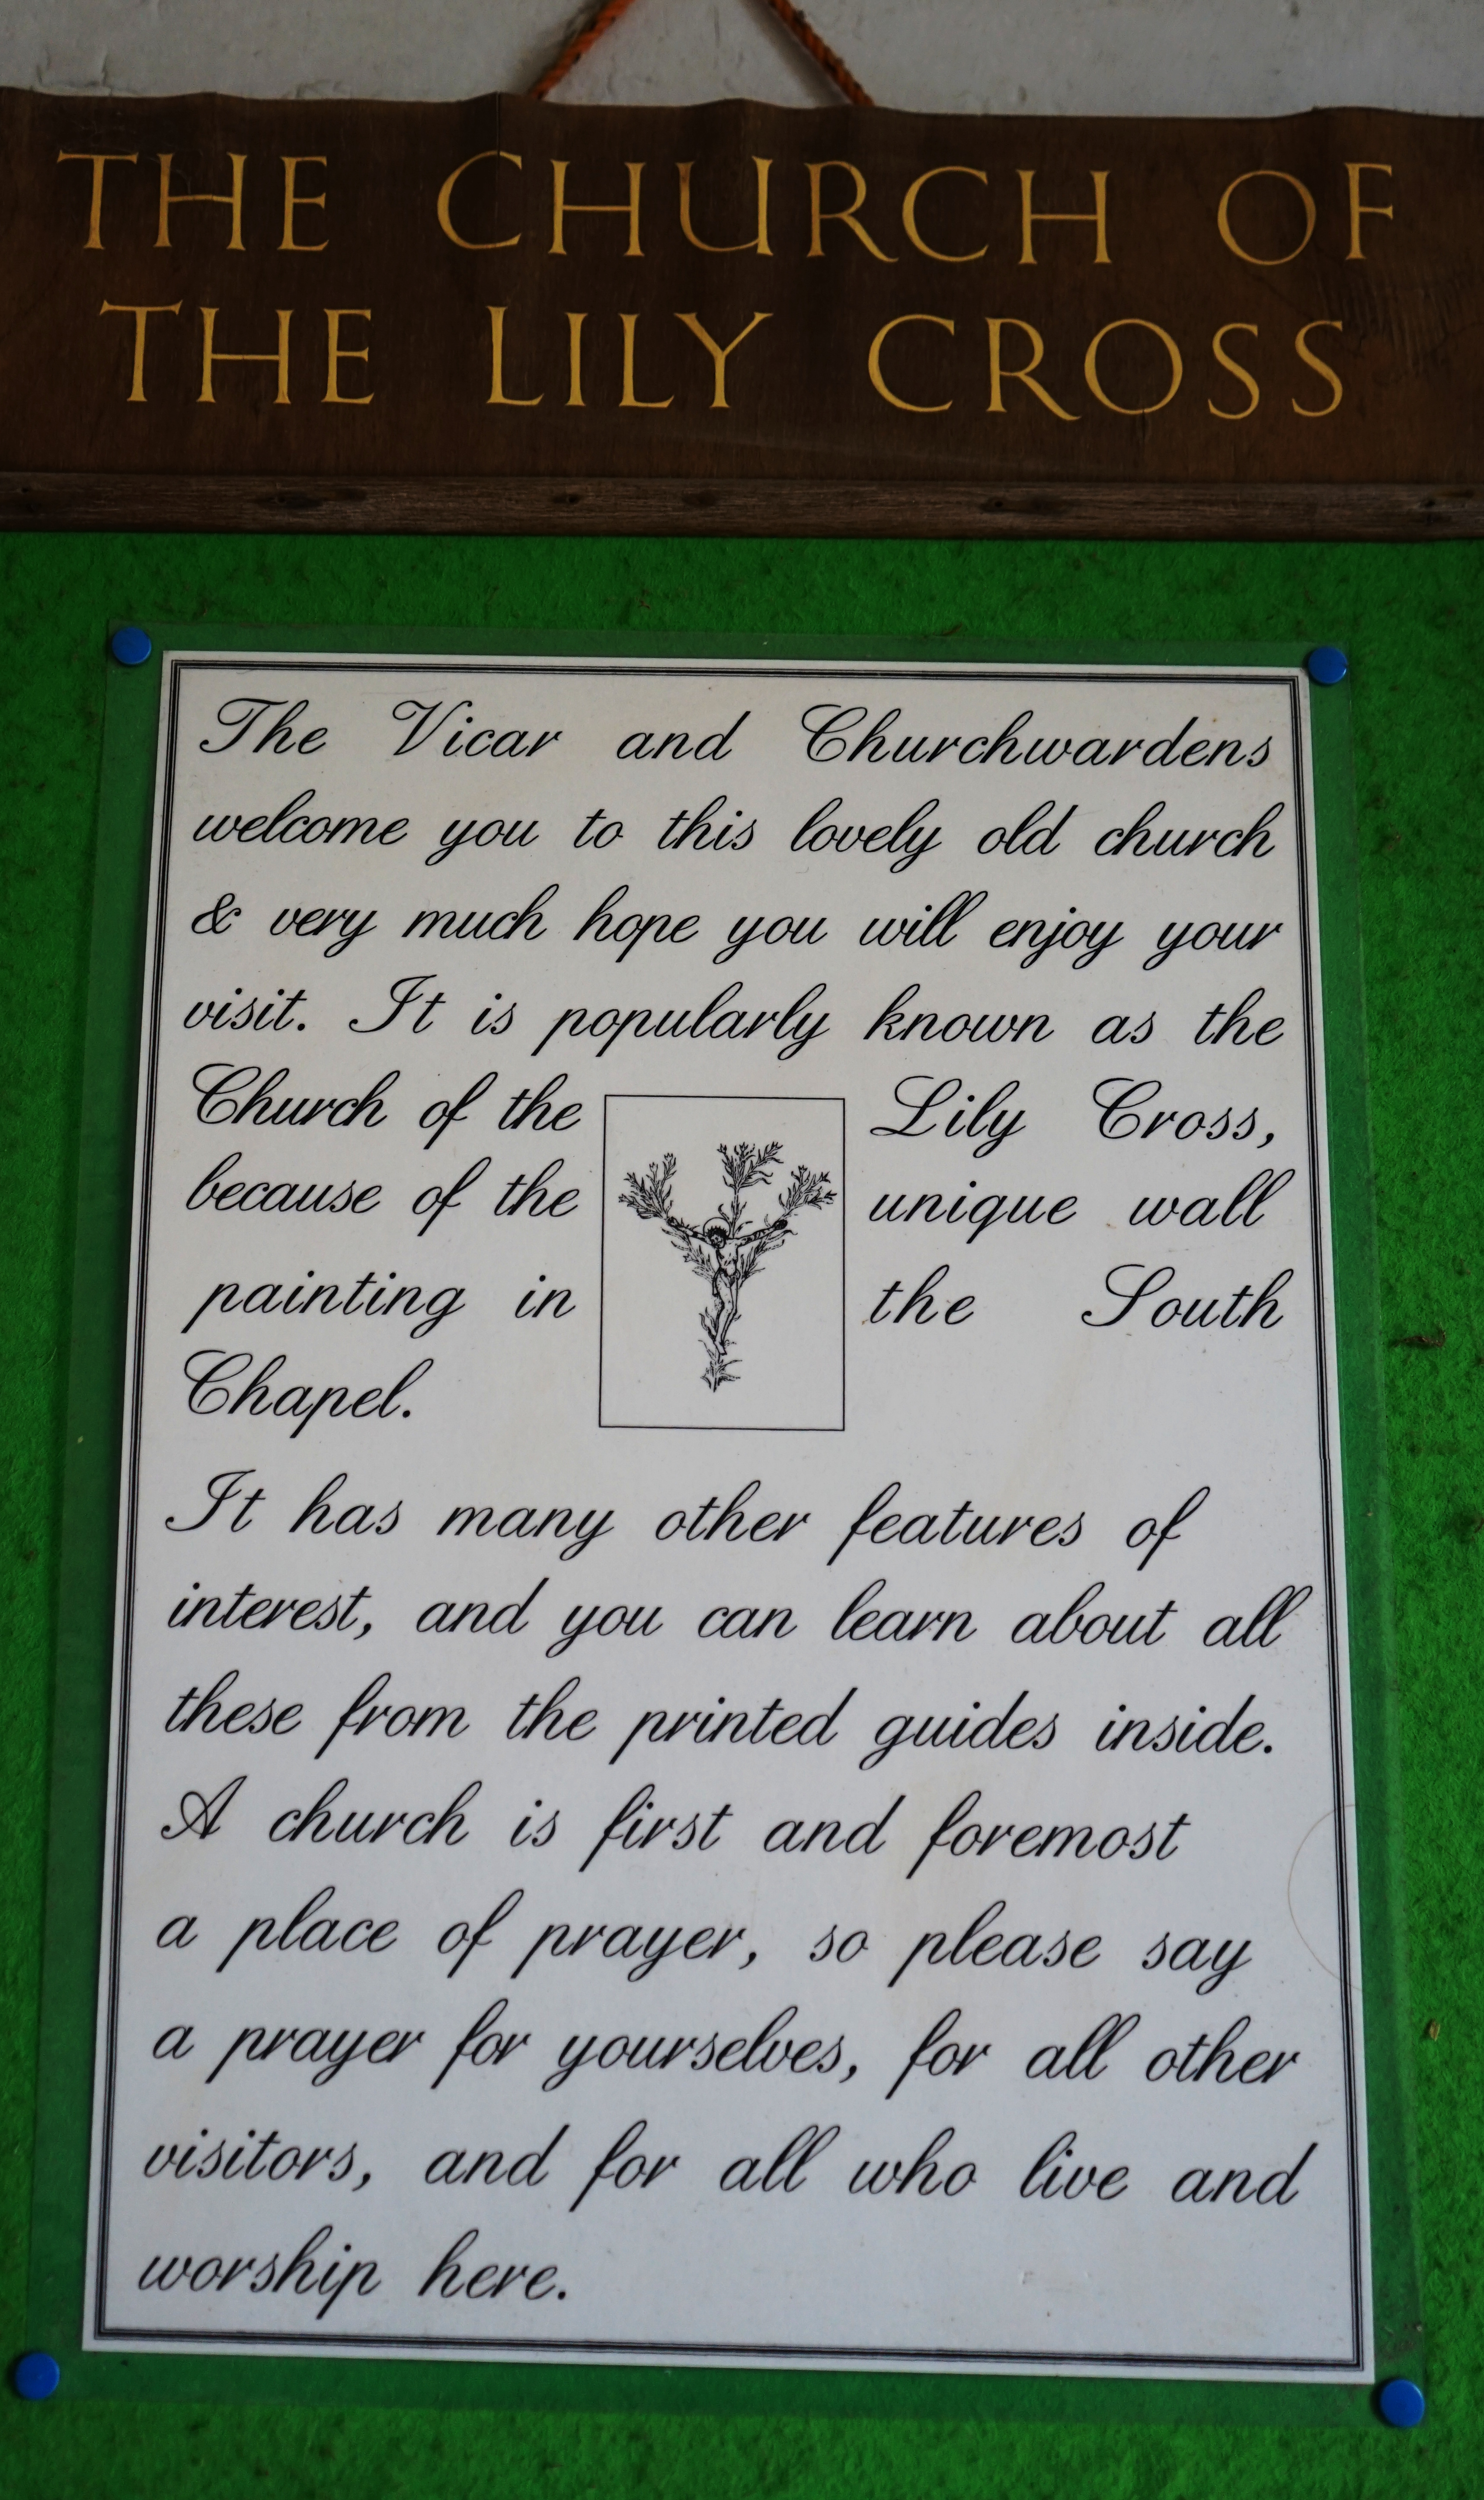 THE CHURCH OF
THE LILY CROSS
The Vicar and Churchwardens
welcome you to this lovely old church
& very much hope you will enjoy your
visit. It is popularly known as the
Church of the Lily Cross,
because of the unique wall
painting in the South
Chapel.
It has many other features of
interest, and you can learn about all
these from the printed guides inside.
A church is first and foremost
a place of prayer, so please say
a prayer for yourselves, for all other
visitors, and for all who live and
worship here.